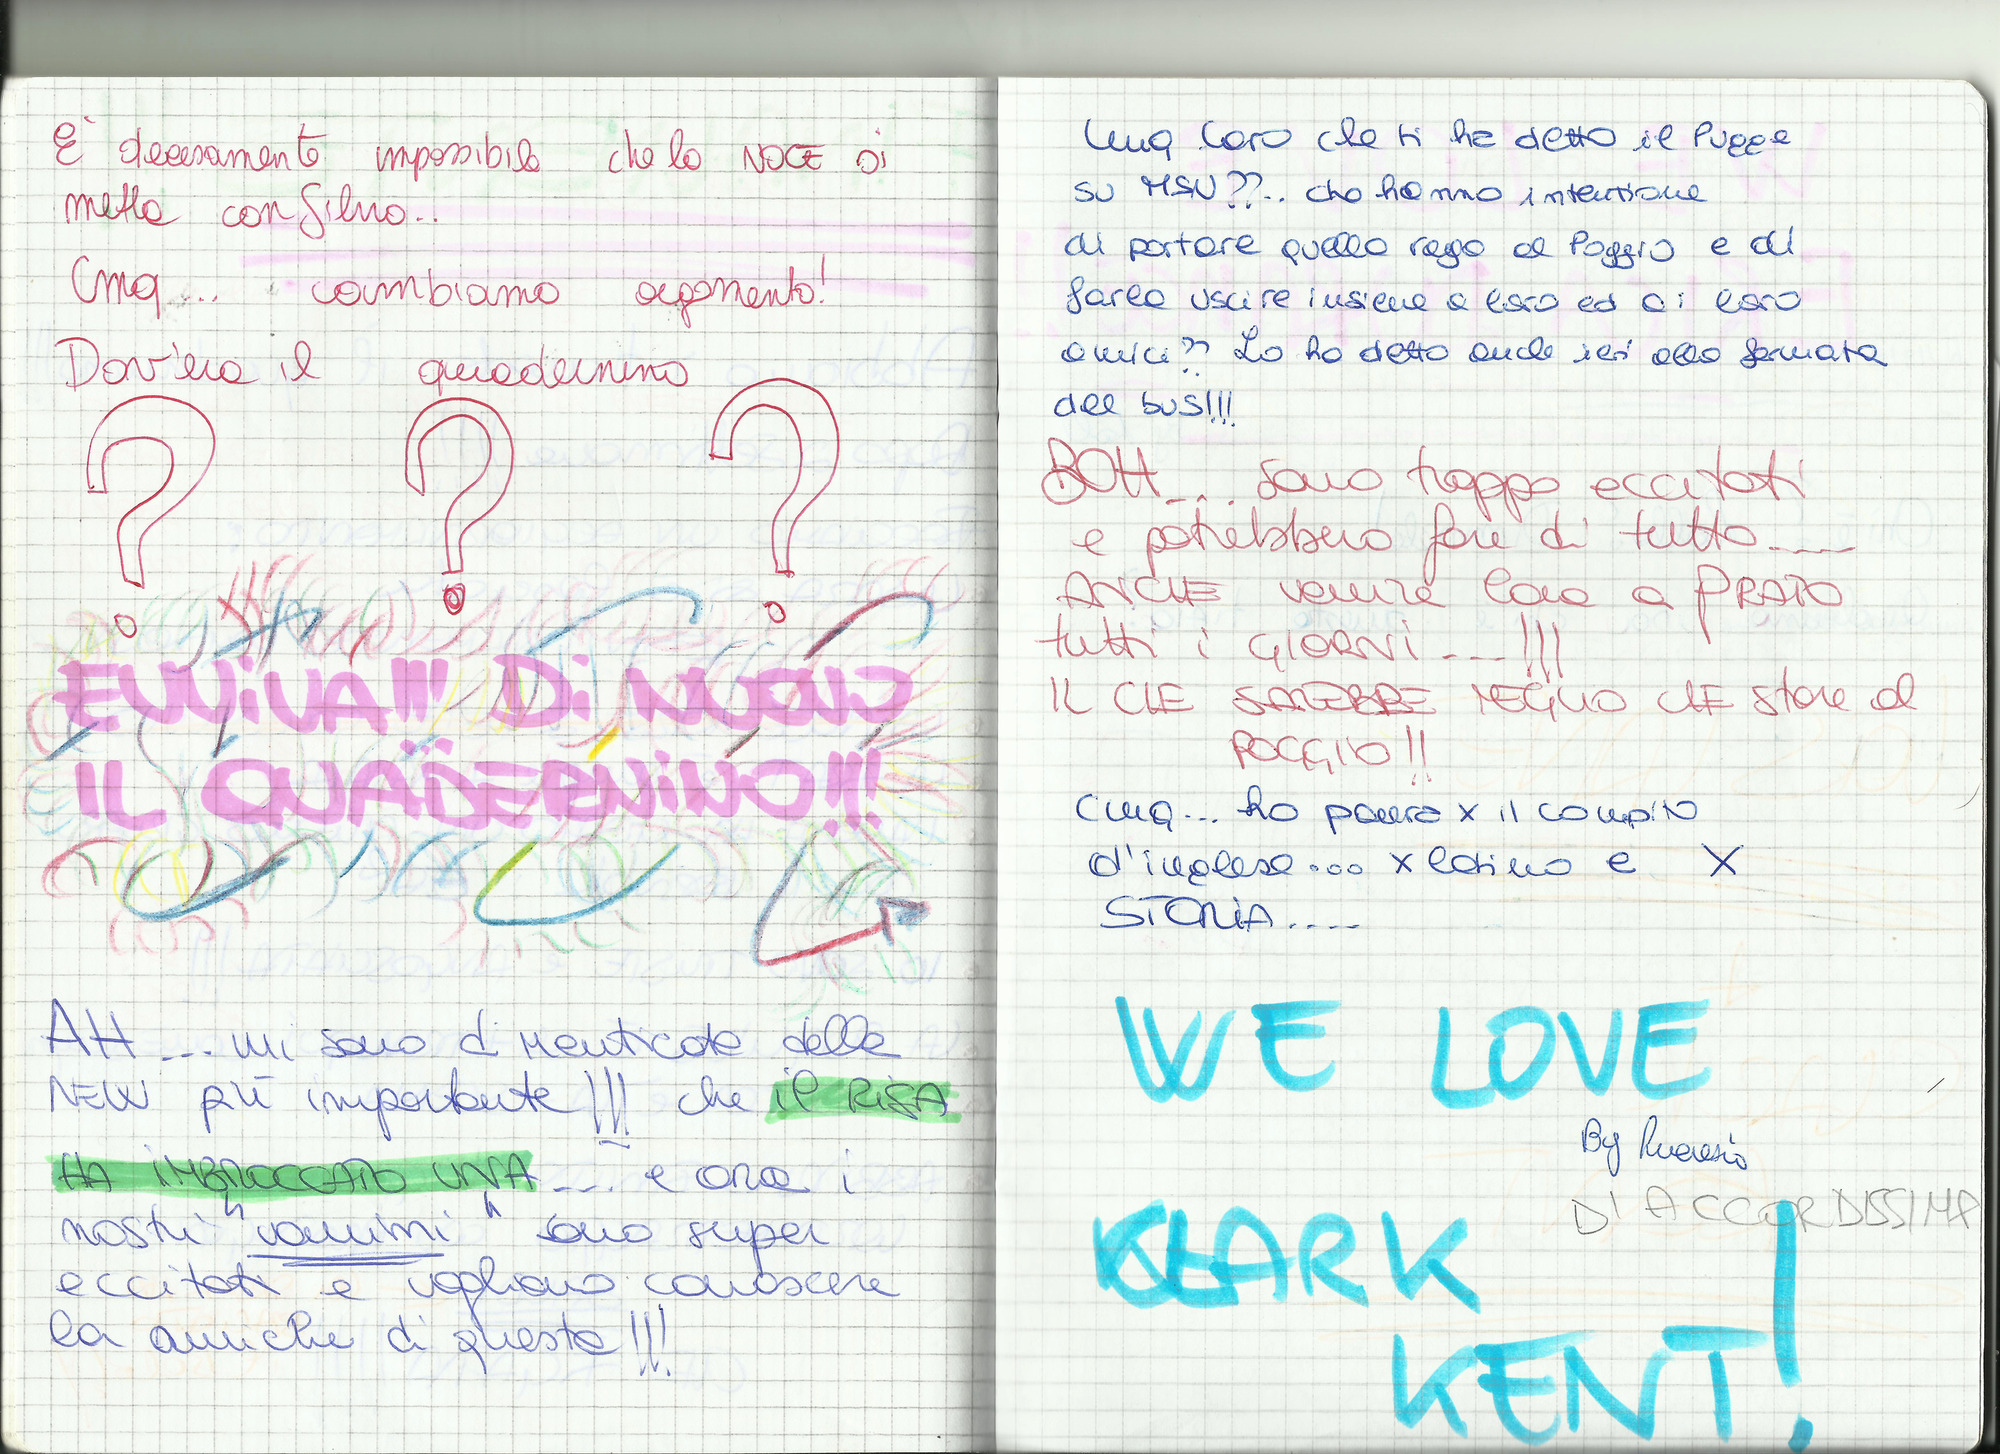 È decisamente impossibile che la NOCE si
metta con Silvio..
Cmq... cambiamo argomento!
Dov'era il quadernino
? ? ?
EVVIVA!!! Di NUOVO
IL QUADERNiNO!!!
AH ... mi sono dimenticata della
NEW più importante!!! che il RISA
HA iMBROCCATO UNA .... e ora i
nostri "omuimi" sono super
eccitati e vogliono conoscere
la amiche di questa!!!
Cmq loro che ti ha detto il Pugge
SU MSN??... che hanno intenzione
di portare quella raga al Poggio e di
farla uscire insieme a loro ed ai loro
amici?? Lo ha detto anche ieri alla fermata
del bus!!!
BOH.... sono troppo eccitati
e potrebbero fare di tutto....
ANCHE venire loro a PRATO
tutti i GIORNI ...!!!
IL CHE SAREBBE MEGLIO CHE stare al
POGGIO!!
Cmq... ho paura x il compito
d'inglese... x latino e x
STORiA....
WE LOVE
By
D'ACCORDISSIMA
KLARK
KENT!